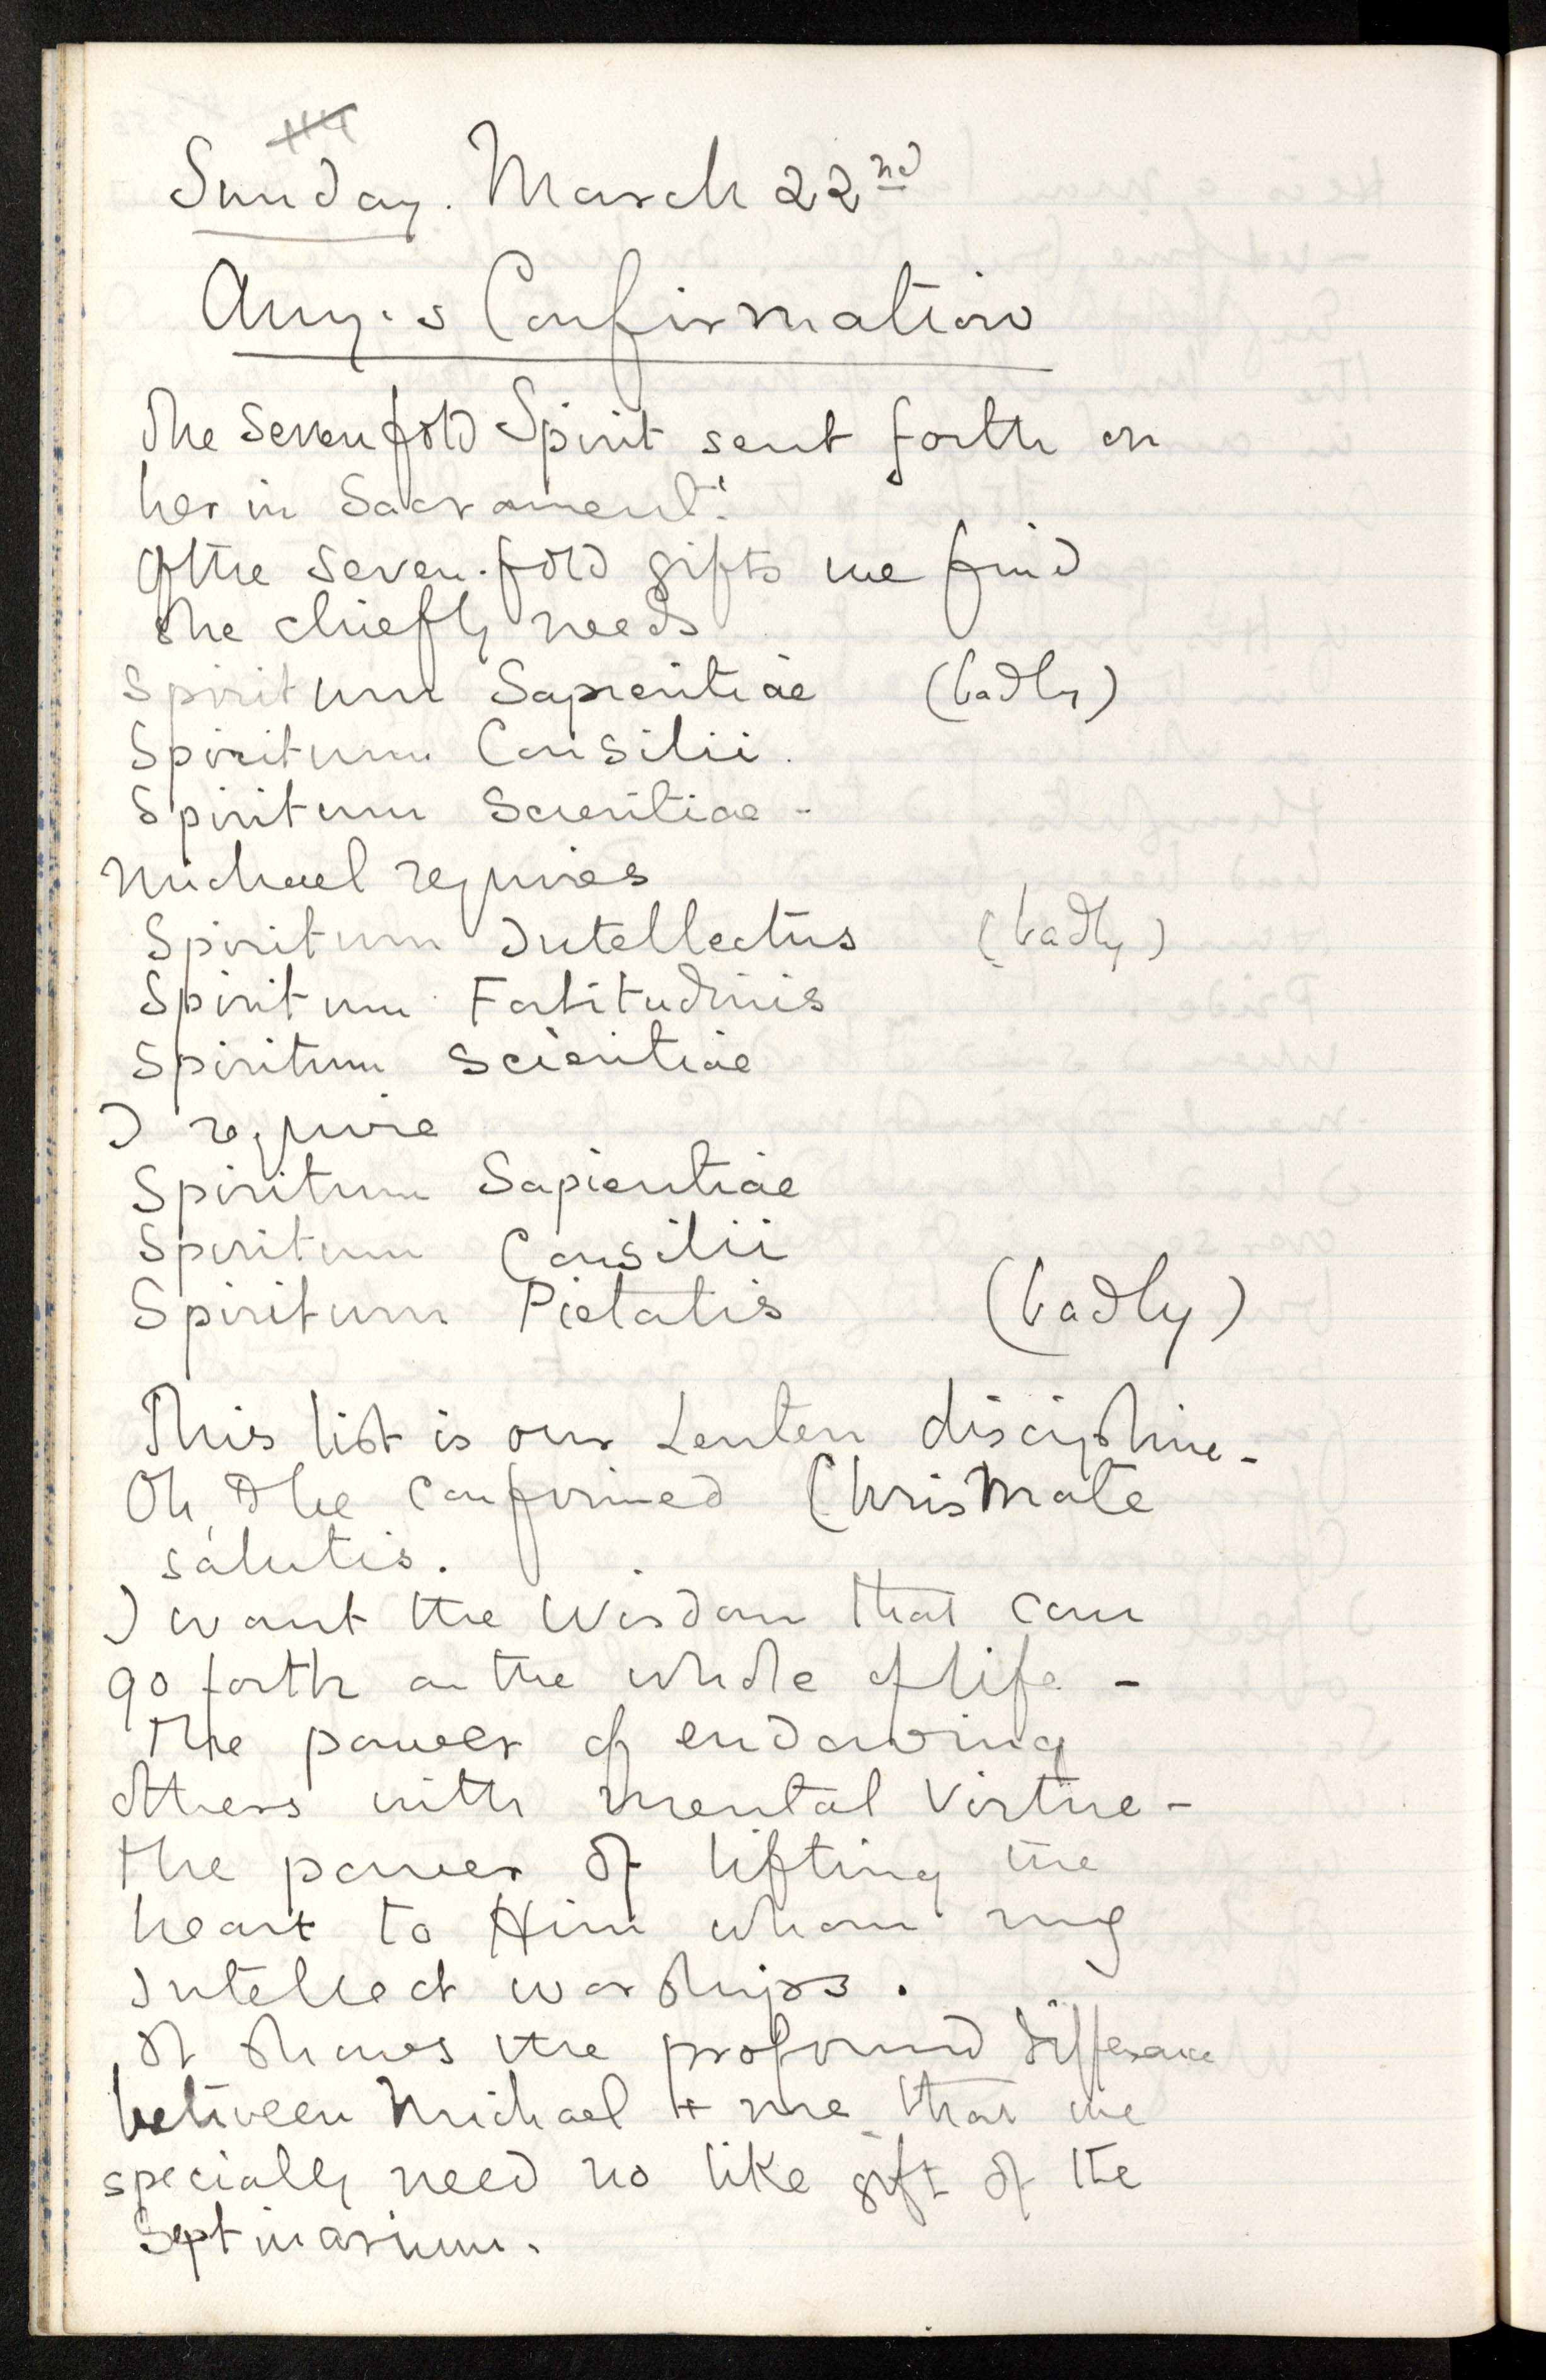 114
Sunday. March 22nd
Amy's Confirmation
The Sevenfold Spirit sent forth on
her in Sacrament!
Of the seven-fold gifts we find
she chiefly needs
Spiritum Sapientiae (badly)
Spiritum Consilii.
Spiritum Scientiae -
Michael requires
Spiritum Intellectus (badly)
Spiritum Fortitudinis
Spiritum Scientiae
I require
Spiritum Sapientiae
Spiritum Consilii
Spiritum Pietatis (badly)
This list is our Lenten discipline -
Oh, to be confirmed Chrismate
salutis.
I want the Wisdom that can
go forth on the whole of life -
the power of endowing
others with mental virtue -
the power of lifting the
heart to Him whom my
Intellect worships.
It shows the profound difference
between Michael + me that we
specially need no like gift of the
Septinarium.